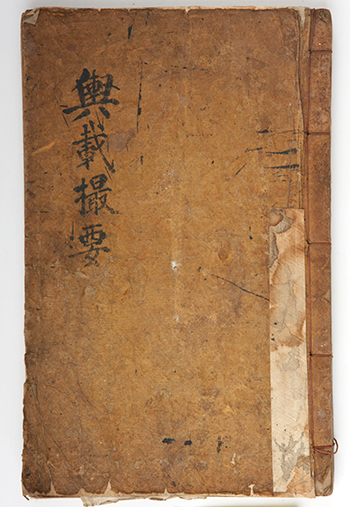 輿載撮要